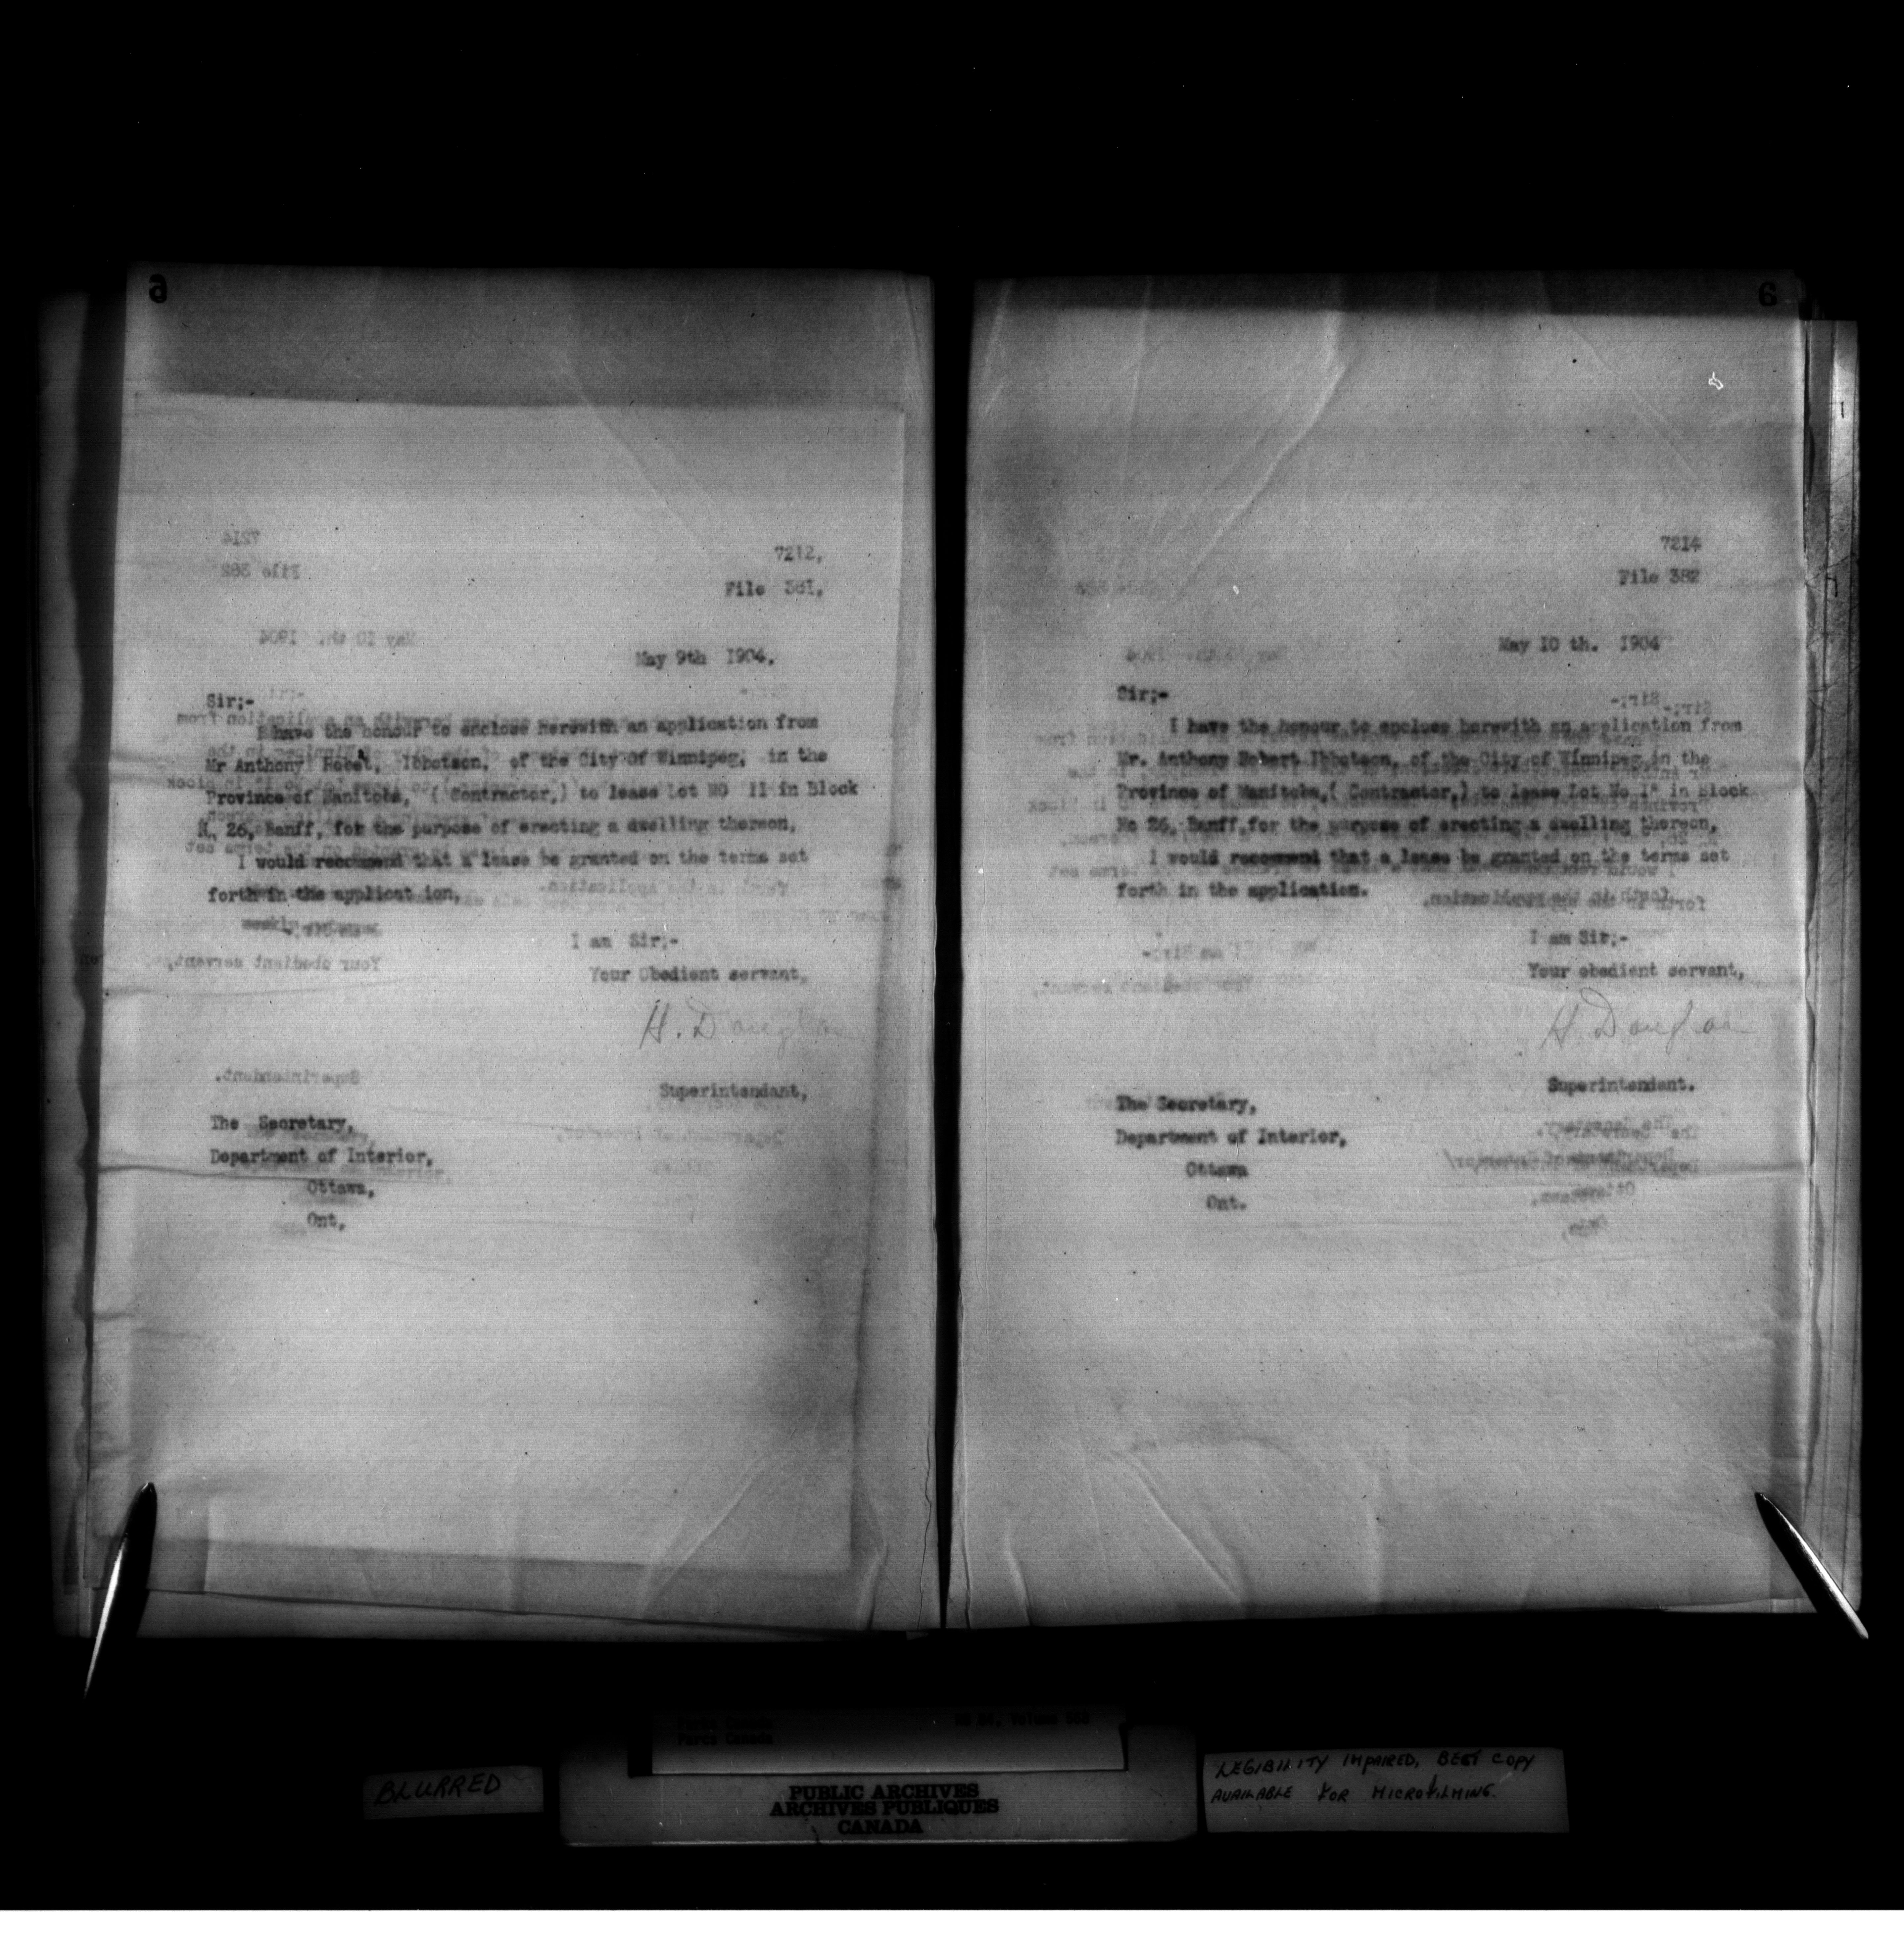 7212,
File 381,
May 9th 1904.
Sir;-
I have the honour to enclose herewith an application from
Mr Anthony Ibbotson, of the City Of Winnipeg, in the
Province of Manitoba, ( Contractor,) to lease Lot NO 11 in Block
N. 26, Banff, for the purpose of erecting a dwelling thereon,
I would recommend that a lease be granted on the terms set
forth in the applicat ion,
I am Sir;-
Your Obedient servant,
H. Douglas
Superintendant,
The Secretary,
Department of Interior,
Ottawa,
Ont,
6
7214
File 382
May 10 th. 1904
Sir;-
I have the honour to enclose herewith an application from
Mr. Anthony Robert Ibbotson, of the City of Winnipeg,in the
Province of Manitoba,( Contractor,) to lease Lot No in Block
No 26, Banff,for the purpose of erecting a dwelling thereon,
I would recommend that a lease be granted on the terms set
forth in the application.
I am Sir;-
Your obedient servant,
H. Douglas
Superintendant.
The Secretary,
Department of Interior,
Ottawa
Ont.
Parks Canada
Parcs Canada
RG 84, Volume
BLURRED
PUBLIC ARCHIVES
ARCHIVES PUBLIQUES
CANADA
LEGIBILITY IMPAIRED, BEST COPY
AVAILABLE FOR MICROFILMING.